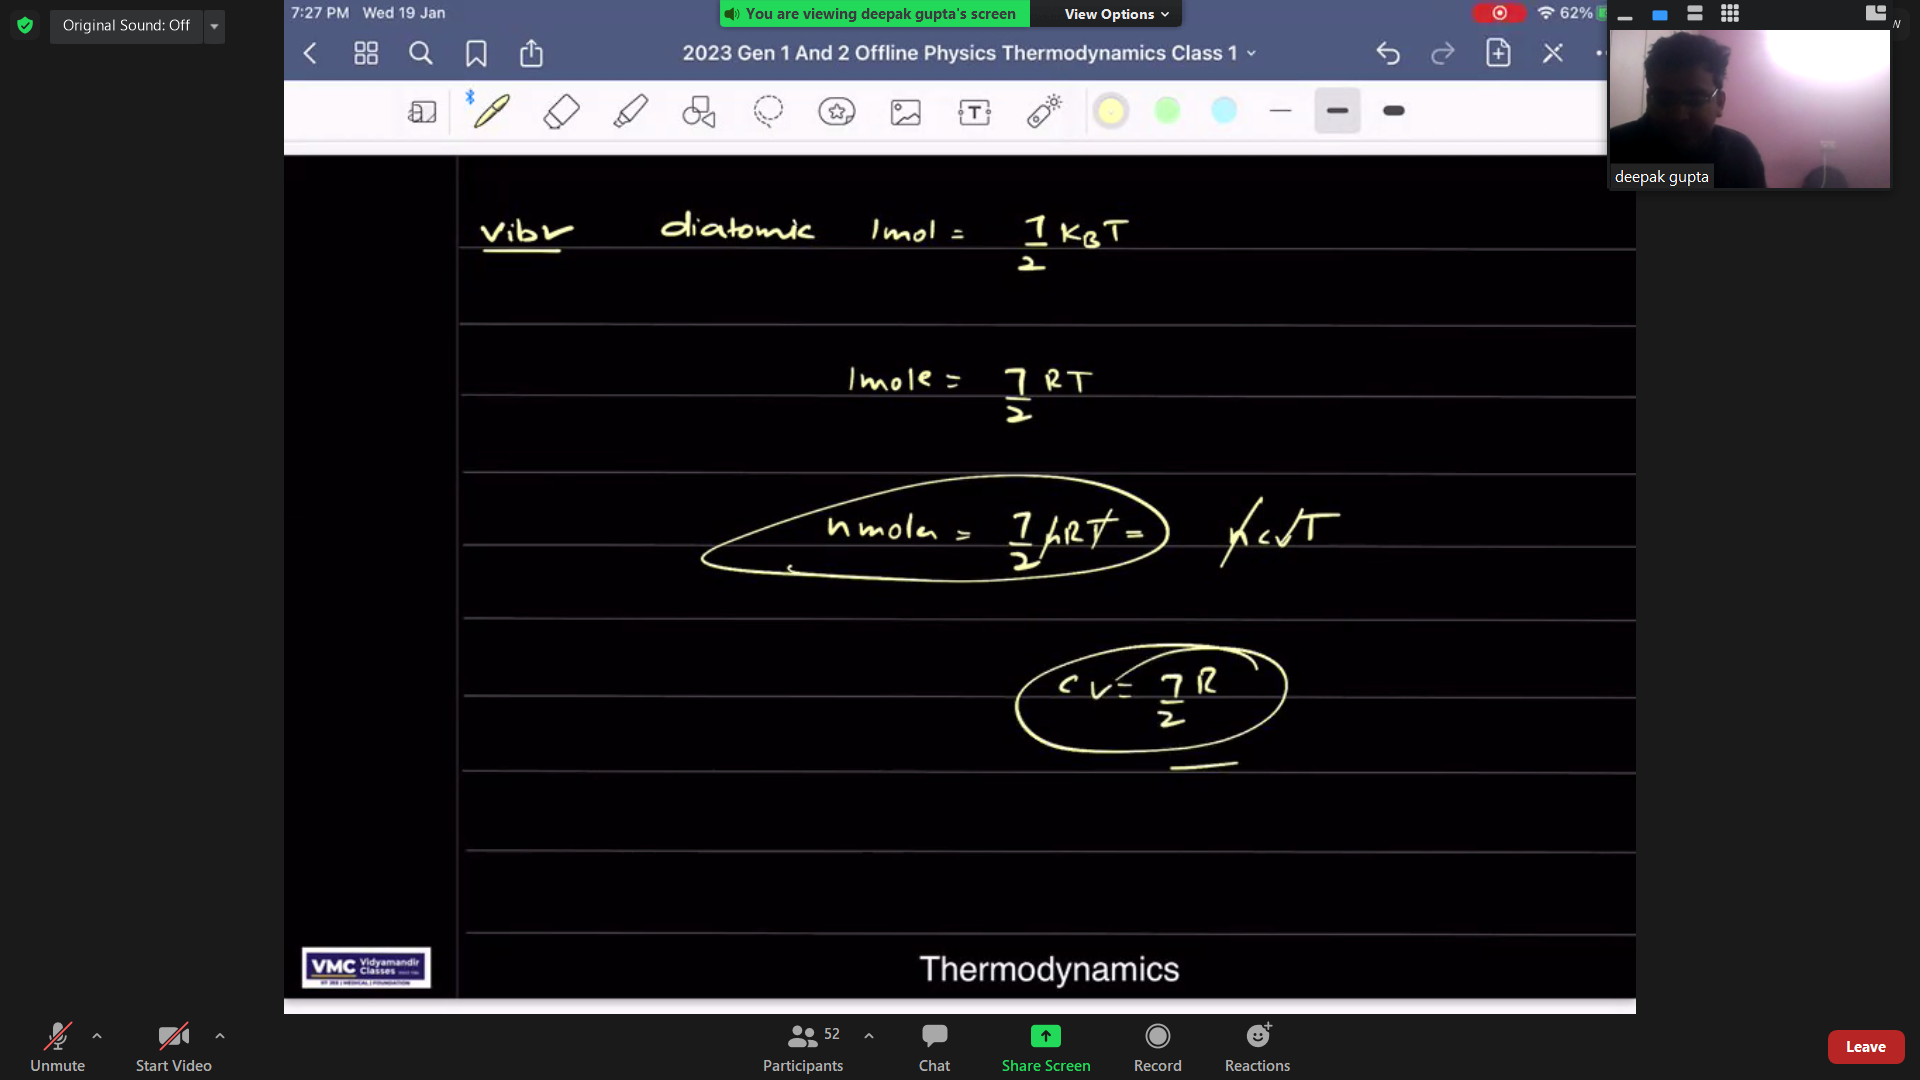 Original Sound: Off
7:27 PM Wed 19 Jan
You are viewing deepak gupta's screen
View Options
62%
2023 Gen 1 And 2 Offline Physics Thermodynamics Class 1
deepak gupta
vibr diatomic 1mol = 7/2 KBT
1mole = 7/2 RT
nmoles = 7/2 nRT = ncvT
cv = 7/2 R
VMC Vidyamandir Classes
Thermodynamics
Unmute
Start Video
Participants 52
Chat
Share Screen
Record
Reactions
Leave